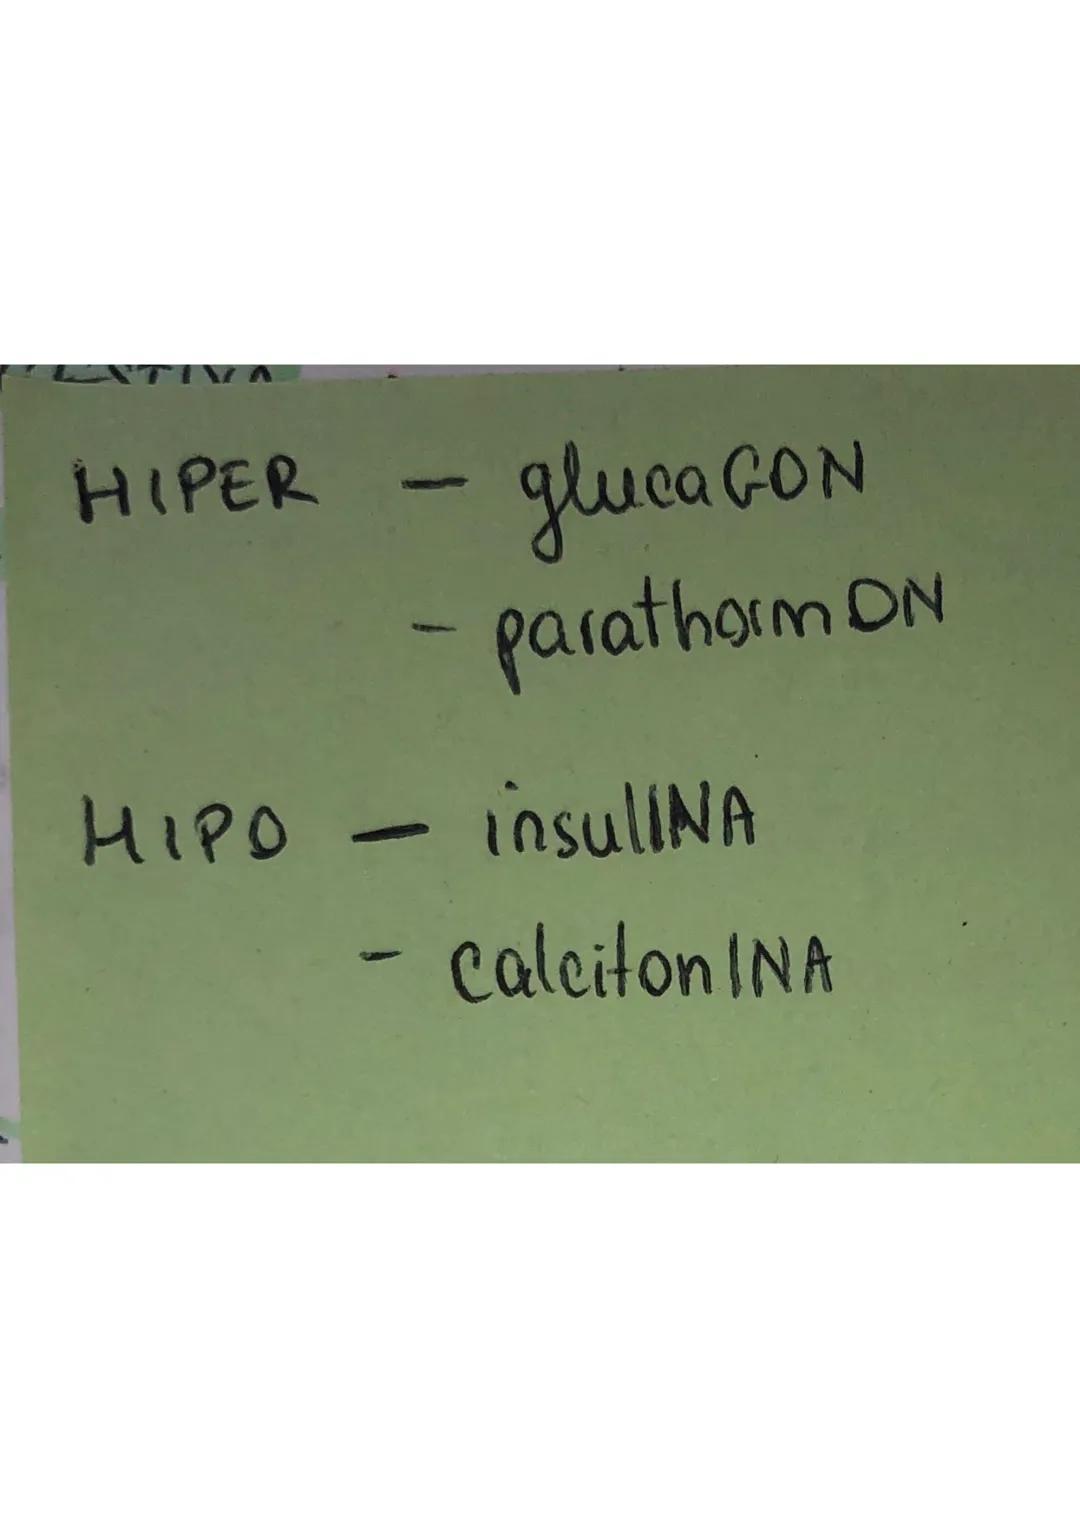 HIPER - glucaGON
- parathormON
HIPO - insulINA
- calcitonINA